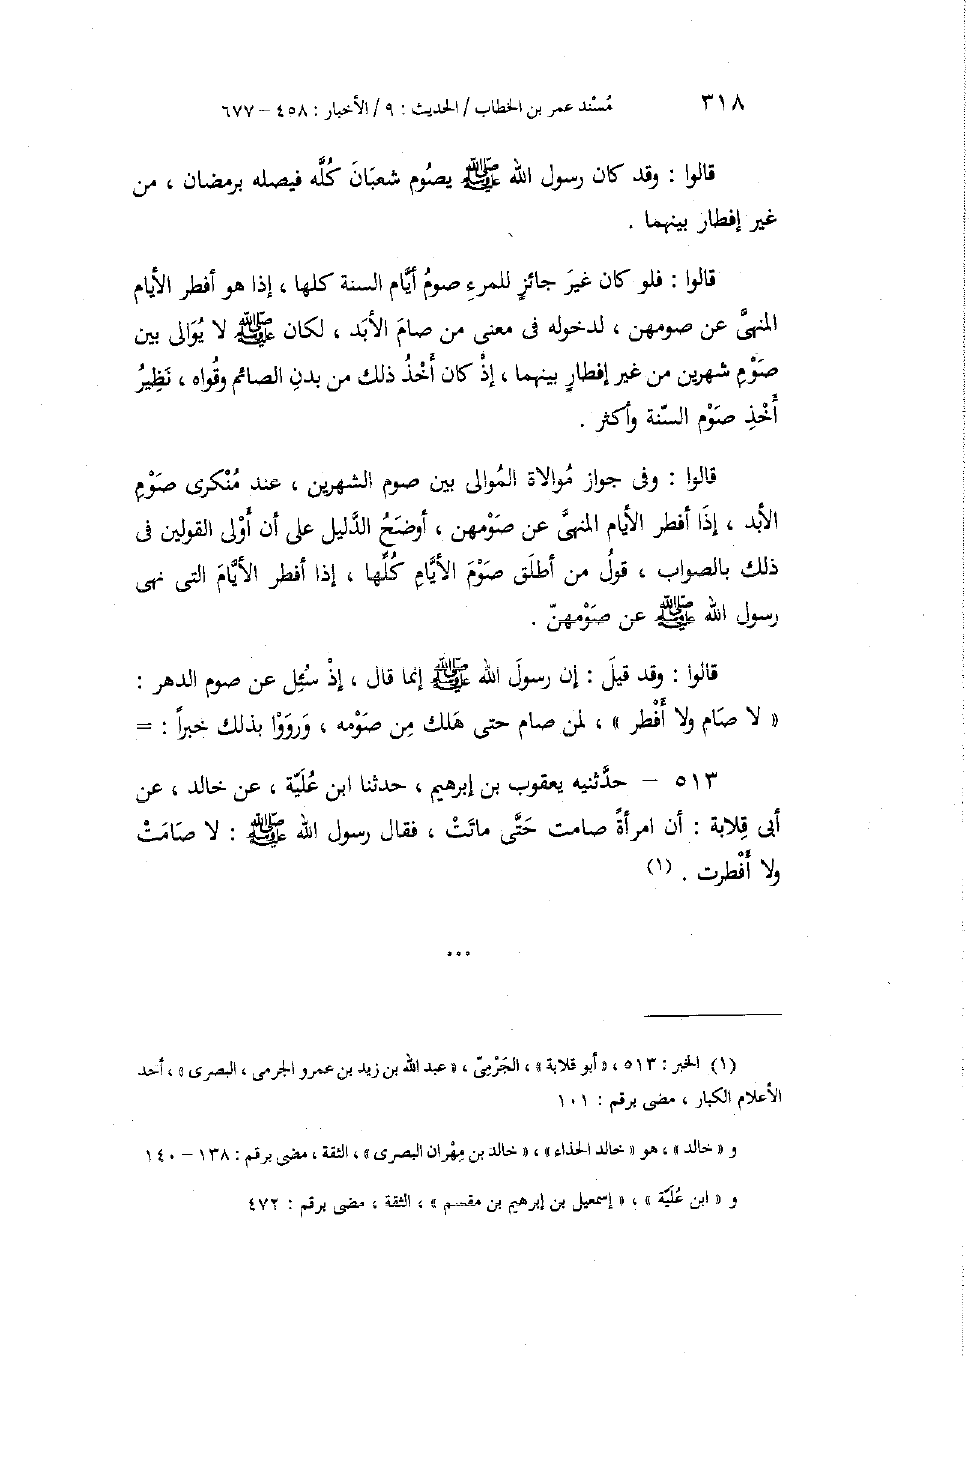 ٣١٨ مُسْند عمر بن الخطاب / الحديث : ٩ / الأخبار : ٤٥٨ – ٦٧٧
قالوا : وقد كان رسول الله ﷺ يصوُم شعبَانَ كُلَّه فيصله برمضان ، من
غير إفطار بينهما .
قالوا : فلو كان غيرَ جائزٍ للمرءِ صومُ أيَّام السنة كلها ، إذا هو أفطر الأيام
المنهىَّ عن صومهن ، لدخوله فى معنى من صامَ الأبَد ، لكان ﷺ لا يُوَالى بين
صَوْمِ شهرين من غير إفطارٍ بينهما ، إذْ كان أَخْذُ ذلك من بدنِ الصائم وقُواه ، نَظِيرُ
أَخْذِ صَوْم السّنة وأكثر .
قالوا : وفى جواز مُوالاة المُوالى بين صوم الشهرين ، عند مُنْكرى صَوْمِ
الأبد ، إذَا أفطر الأيام المنهىَّ عن صَوْمهن ، أوضَحُ الدَّليل على أن أوْلى القولين فى
ذلك بالصواب ، قولُ من أطلَق صَوْمَ الأيَّامِ كُلِّها ، إذا أفطر الأيَّامَ التى نهى
رسول الله ﷺ عن صَوْمهنّ .
قالوا : وقد قيلَ : إن رسولَ الله ﷺ إنما قال ، إذْ سُئِل عن صوم الدهر :
« لا صَام ولا أَفْطر » ، لمن صام حتى هَلك مِن صَوْمه ، وَروَوْا بذلك خبراً : =
٥١٣ – حدَّثنيه يعقوب بن إبرهيم ، حدثنا ابن عُلَيّة ، عن خالد ، عن
أبى قِلابة : أن امرأةً صامت حَتَّى ماتَتْ ، فقال رسول الله ﷺ : لا صَامَتْ
ولا أَفْطرت . (١)
•••
(١) الخبر : ٥١٣ ، « أبو قلابة » ، الجَرْمِىّ ، « عبد الله بن زيد بن عمرو الجرمى ، البصرى » ، أحد
الأعلام الكبار ، مضى برقم : ١٠١
و « خالد » ، هو « خالد الحذاء » ، « خالد بن مِهْران البصرى » ، الثقة ، مضى برقم : ١٣٨ – ١٤٠
و « ابن عُلَيّة » ، « إسمعيل بن إبرهيم بن مقسم » ، الثقة ، مضى برقم : ٤٧٢